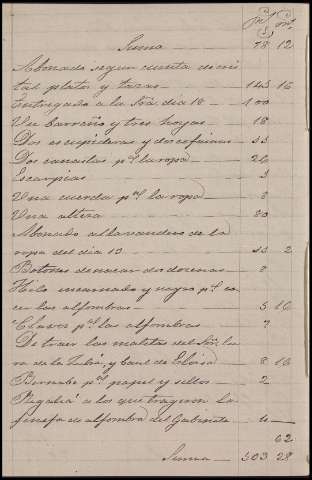 Suma 78 12
Abonado segun cuenta de mi
tad platos y tazas 145 16
Entregado a la Sra. dia 18 100
Un barreño y tres hoyas 18
Dos escupideras y dos cofainas
Dos canastas pa. la ropa 26
Escarpias 3
Una cuerda pa. la ropa 8
Una
Abonado a la lavandera de la
ropa del dia 13 2
Botones de nacar dos docenas 8
Hilo encarnado y negro pa. co
ser las alfombras 5 16
Clavos pa. las alfombras
De traer las maletas del Sor.
ra de la Zubia y baul de Eloisa 8 16
Bernabe pa. papel y sellos 2
Regalia a los que trageron la
de alfombra del Gabinete
62
Suma 28